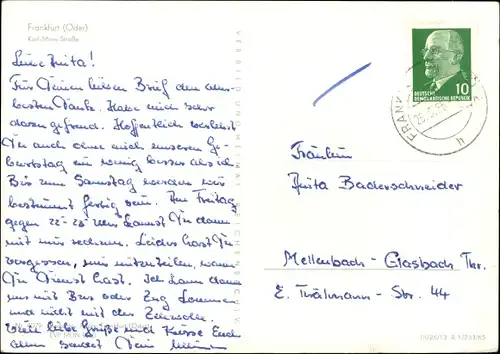 Frankfurt (Oder)
Karl-Marx-Straße
Liebe Anita!
Für Deinen lieben Brief den aller-
besten Dank. Habe mich sehr
darüber gefreut. Hoffentlich verlebst
Du auch ohne mich unseren Ge-
burtstag ein wenig besser als ich
Bis zum Samstag werden wir
bestimmt fertig sein. Am Freitag
gegen 22-23 Uhr kannst Du dann
mit mir rechnen. Leider hast Du
vergessen, mir mitzuteilen, wann
Du Dienst hast. Ich kann dann
erst mit Bus oder Zug kommen
und nicht mit der
Viele liebe Grüße und Küsse Euch
allen sendet Dein
DEUTSCHE
DEMOKRATISCHE REPUBLIK
10
Fräulein
Anita Baderschneider
Mellenbach-Glasbach Thr.
E. Thälmann-Str. 44